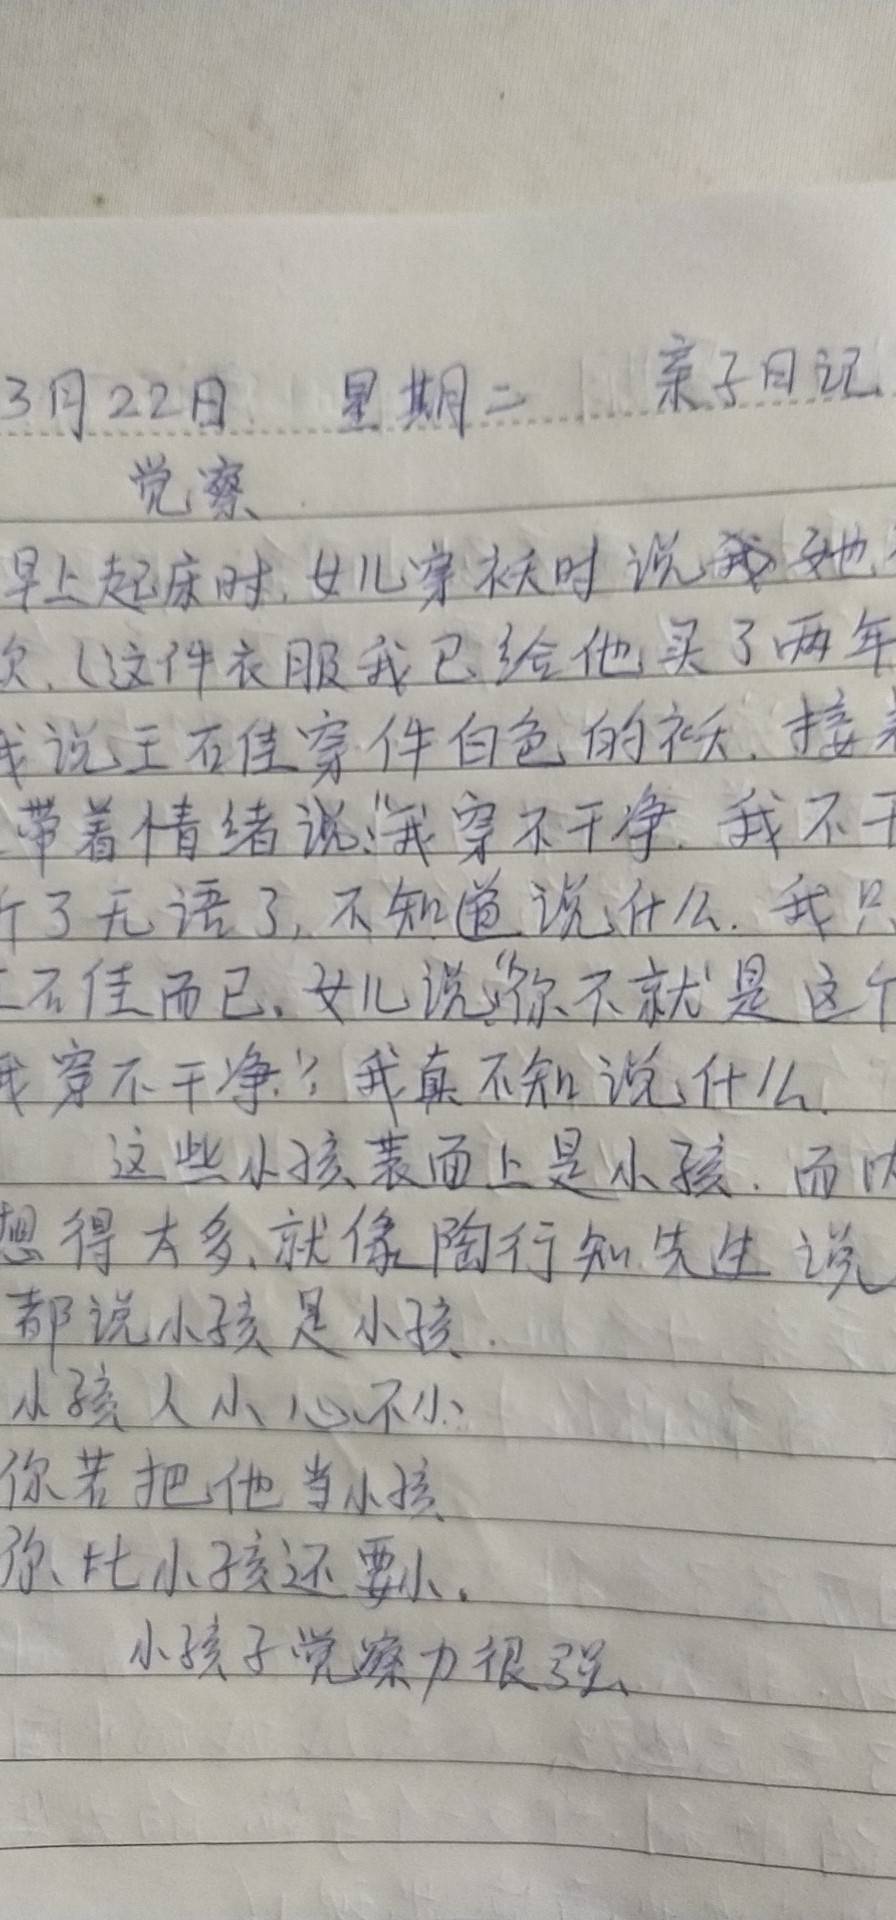 3月22日 星期二 亲子日记
觉察
早上起床时,女儿穿袄时说 她
次,(这件衣服我已给他买了两年
我说王石佳穿件白色的袄.接
带着情绪说:"我穿不干净.我不干
听了无语了,不知道说什么.我只
石佳而已.女儿说:"你不就是这个
我穿不干净"?我真不知说什么.
这些小孩表面上是小孩.而内
想得太多,就像陶行知先生说
都说小孩是小孩.
小孩人小心不小
你若把他当小孩
你比小孩还要小.
小孩子觉察力很强